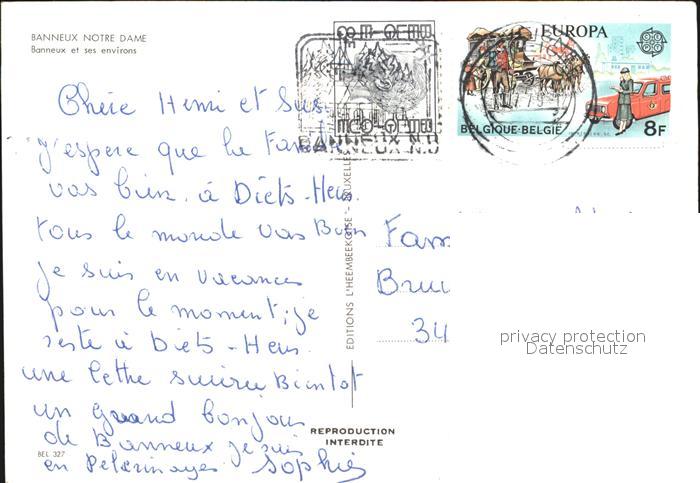 BANNEUX NOTRE DAME
Banneux et ses environs
EUROPA
BELGIQUE·BELGIE
8F
BANNEUX N.D
Chère Henri et Sus
j'espere que la Fam
vas bien. à Diets-Heur
tous le monde vas Bien
je suis en vacances
pour le moment; je
reste à Diets-Heur.
une lettre suivra Bientot
un grand bonjour
de Banneux je suis
en Pelerinages Sophie
EDITIONS L'HEEMBEEKGISE - BRUXELLES
Fam
Bru
34
privacy protection
Datenschutz
REPRODUCTION
INTERDITE
BEL 327